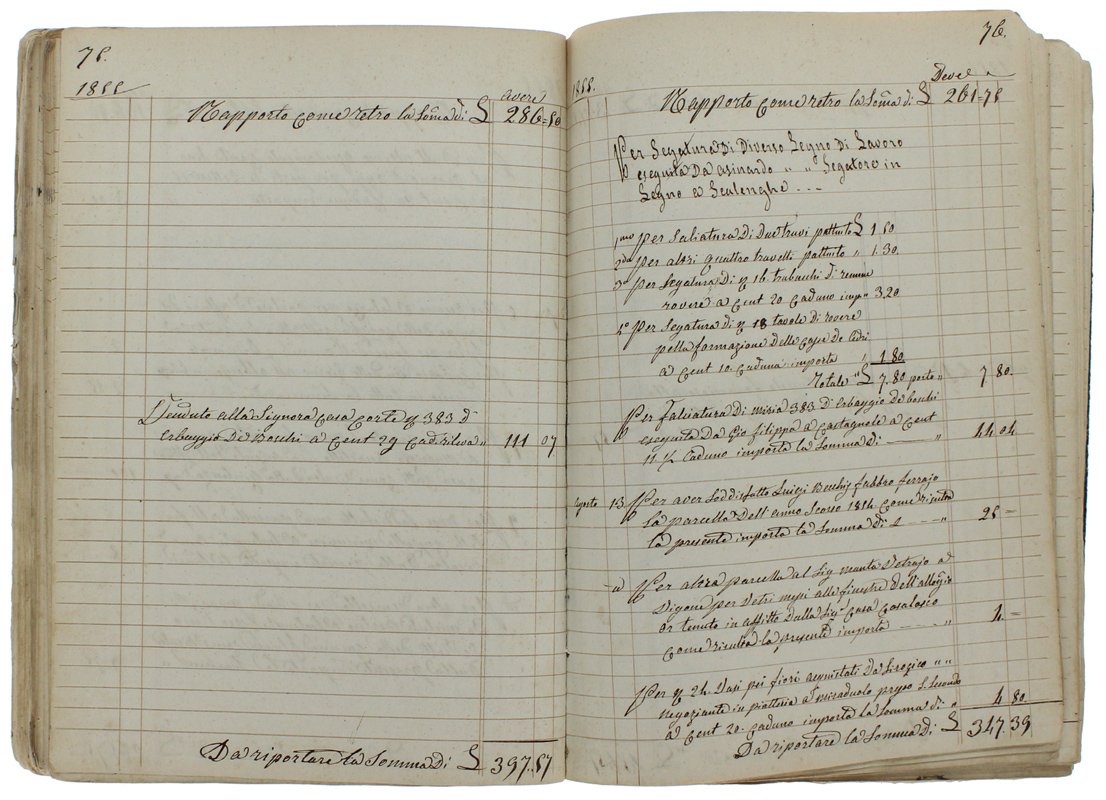 75.
1855
avere
Rapporto come retro la Som̃a di £ 286=50
Vendute alla Signora Casa Corte N 383 di
Erbaggio de Boschi a Cent 29 Cad. rileva " 111 07
Da riportare la Somma Di £ 397.57
76.
1855.
Deve
Rapporto come retro la Som̃a di £ 261=75
Per Segatura Di Diverso Legno Di Lavoro
eseguita Da Asinardo " " Segatore in
Legno a Scalenghe - - -
1mo Per Saliatura Di Due travi pattuito £ 1 50
2do Per altri quattro travelli pattuito " 1.30.
3o Per Segatura Di N 16 trabucchi di
rovere a Cent 20 Caduno imp. " 3.20
4o Per Segatura di N 18 tavole di rovere
pella formazione delle Casse De
a Cent 10 Caduna importa " 1.80
Totale " £ 7.80 porto " 7 80.
Per falciatura di 383 D'erbaggio de boschi
eseguita Da Gio Filippa a Castagnole a Cent
11 ½ Caduno importa la Somma di - - " 44 04
Agosto 13 Per aver Soddisfatto Luigi fabbro ferrajo
la parcella Dell'anno Scorso 1854 Come risulta
la presente importa la Somma di £ - - " 25 =
" Per altra parcella al Sig Vetrajo a
Vigone per Vetri messi alle finestre dell'alloggio
tenuto in affitto Dalla Sigra Casa
Come risulta la presente importa - - - " 4. =
Per N 24 Vasi pei fiori acquistati Da " "
negoziante in a Miradolo presso S. Secondo
a Cent 20 Caduno importa la Somma di " 4 80.
Da riportare la Somma Di £ 347.39